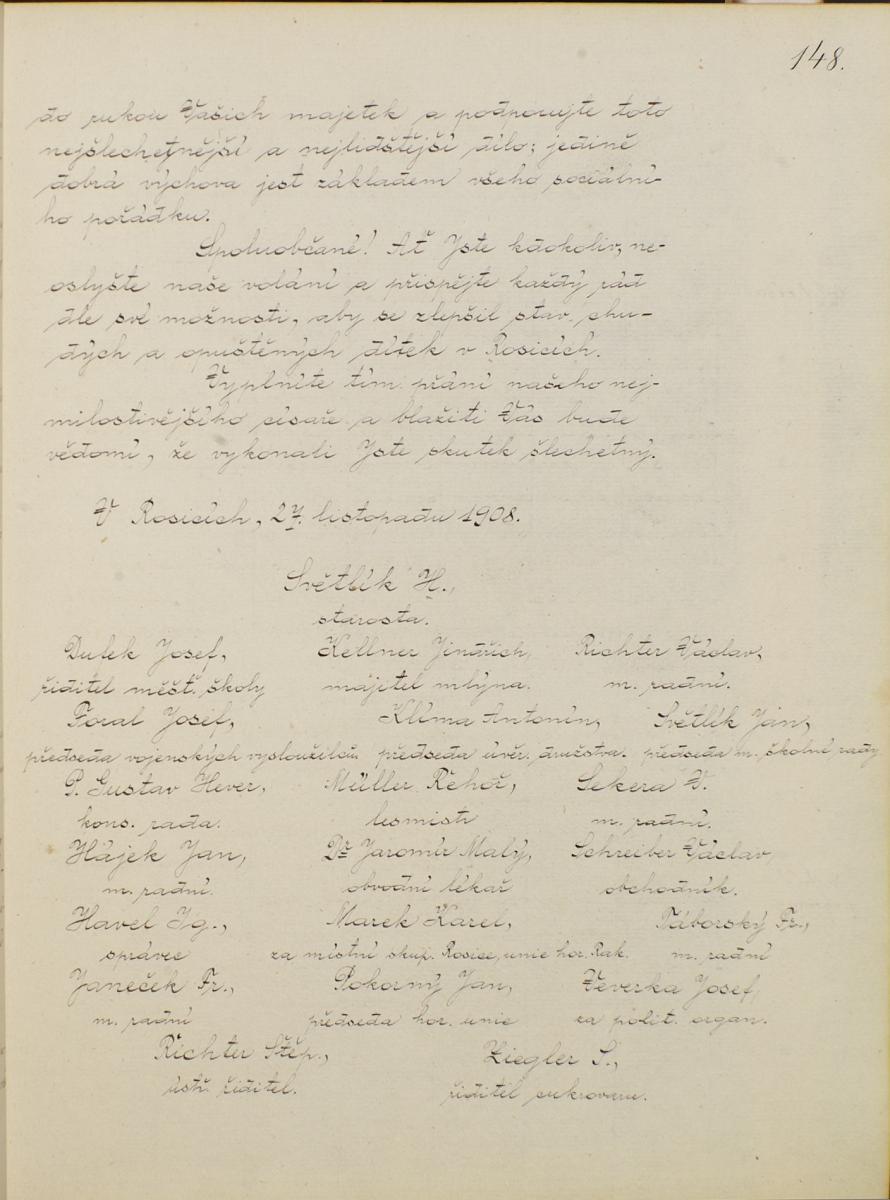 148.
do rukou Vašich majetek a podporujte toto
nejšlechetnější a nejlidštější dílo; jedině
dobrá výchova jest základem všeho sociální-
ho pořádku.
Spoluobčané! Ať Jste kdokoliv, ne-
oslyšte naše volání a přispějte každý rád
dle své možnosti, aby se zlepšil stav chu-
dých a opuštěných dítek v Rosicích.
Vyplníte tím přání našeho nej-
milostivějšího císaře a blažiti Vás bude
vědomí, že vykonali Jste skutek šlechetný.
V Rosicích, 27. listopadu 1908.
Světlík H.,
starosta.
Dufek Josef, Kellner Jindřich, Richter Václav,
řiditel měšť. školy majitel mlýna. m. radní.
Foral Josef, Klíma Antonín, Světlík Jan,
předseda vojenských vysloužilců předseda úvěr. družstva. předseda m. školní rady
P. Gustav Hever, Müller Řehoř, Sekera V.
kons. rada. lesmistr m. radní.
Hájek Jan, Dr. Jaromír Malý, Schreiber Václav,
m. radní. obvodní lékař obchodník.
Havel Ig., Marek Karel, Táborský Fr.,
správce za místní skup. Rosice, unie hor. Rak. m. radní
Janeček Fr., Pokorný Jan, Veverka Josef,
m. radní předseda hor. unie za polit. organ.
Richter Štěp., Ziegler S.,
ústř. řiditel. řiditel cukrovaru.